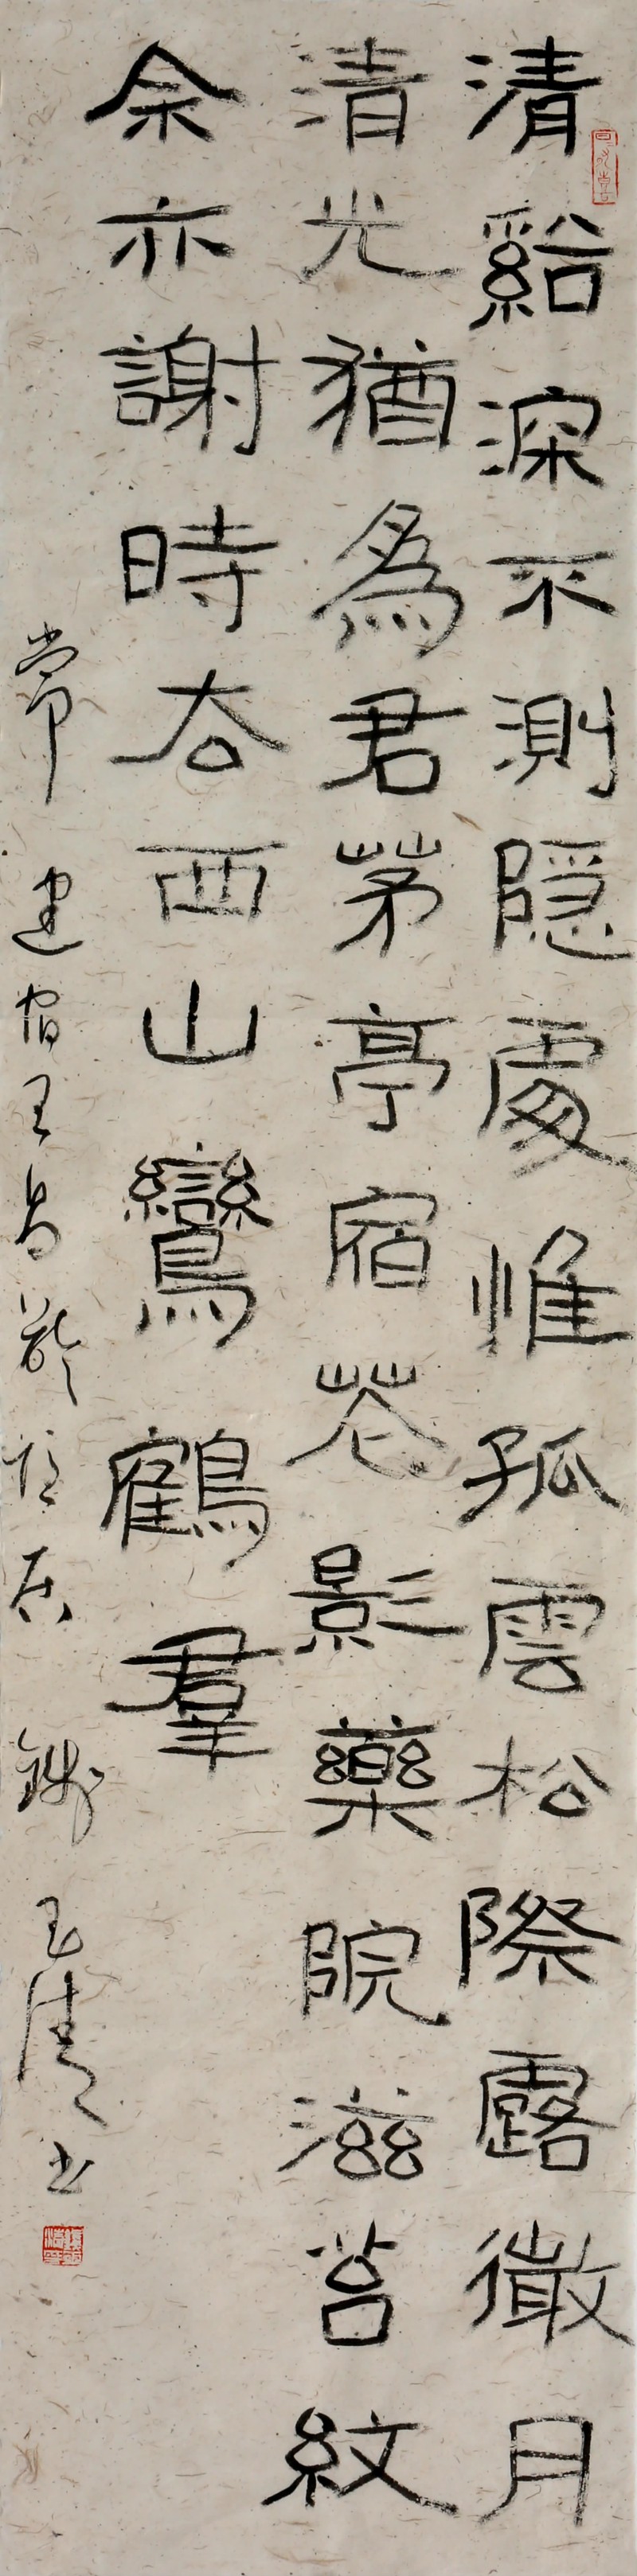 清谿深不測隱處惟孤雲松際露微月
清光猶為君茅亭宿花影藥院滋苔紋
余亦謝時去西山鸞鶴羣
常建宿王昌齡隱居 玉清書